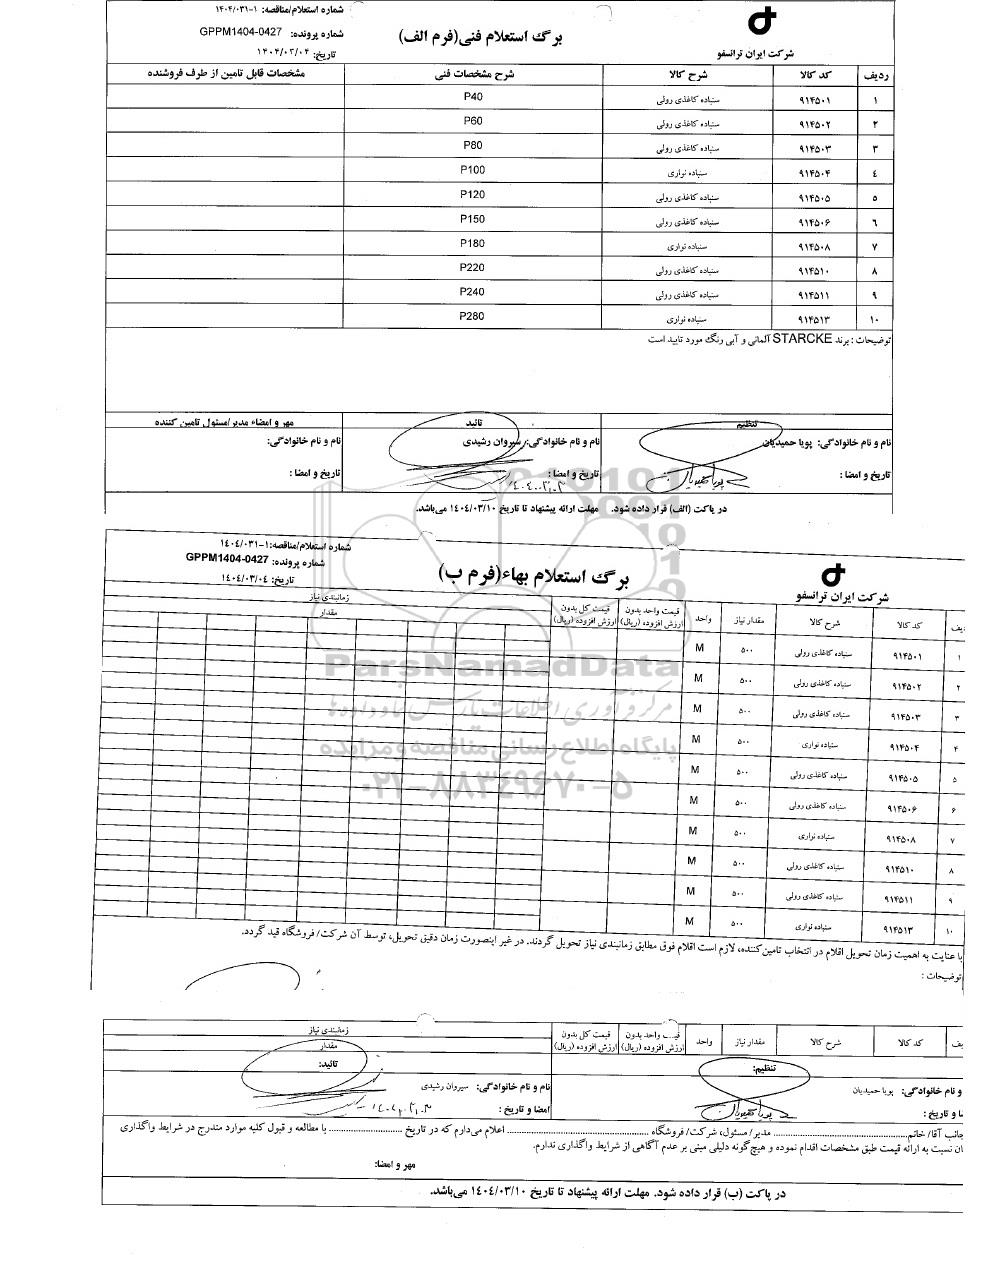 شماره استعلام/مناقصه: ۱-۱۴۰۴/۰۳۱
برگ استعلام فنی(فرم الف)
شماره پرونده: GPPM1404-0427
شرکت ایران ترانسفو
تاریخ: ۱۴۰۴/۰۳/۰۴
ردیف کد کالا شرح کالا شرح مشخصات فنی مشخصات قابل تامین از طرف فروشنده
۱ ۹۱۴۵۰۱ سنباده کاغذی رولی P40
۲ ۹۱۴۵۰۲ سنباده کاغذی رولی P60
۳ ۹۱۴۵۰۳ سنباده کاغذی رولی P80
٤ ۹۱۴۵۰۴ سنباده نواری P100
۵ ۹۱۴۵۰۵ سنباده کاغذی رولی P120
٦ ۹۱۴۵۰۶ سنباده کاغذی رولی P150
۷ ۹۱۴۵۰۸ سنباده نواری P180
۸ ۹۱۴۵۱۰ سنباده کاغذی رولی P220
۹ ۹۱۴۵۱۱ سنباده کاغذی رولی P240
۱۰ ۹۱۴۵۱۳ سنباده نواری P280
توضیحات : برند STARCKE آلمانی و آبی رنگ مورد تایید است
تنظیم تائید مهر و امضاء مدیر/مسئول تامین کننده
نام و نام خانوادگی: پویا حمیدیان نام و نام خانوادگی: سیروان رشیدی نام و نام خانوادگی:
تاریخ و امضا : تاریخ و امضا : تاریخ و امضا :
در پاکت (الف) قرار داده شود. مهلت ارائه پیشنهاد تا تاریخ ۱۴۰٤/۰۳/۱۰ می‌باشد.
شماره استعلام/مناقصه: ۱-۱۴۰٤/۰۳۱
شماره پرونده: GPPM1404-0427
برگ استعلام بهاء(فرم ب)
تاریخ: ۱۴۰٤/۰۳/۰٤
شرکت ایران ترانسفو
یف کد کالا شرح کالا مقدار نیاز واحد قیمت واحد بدون ارزش افزوده (ریال) قیمت کل بدون ارزش افزوده (ریال) زمانبندی نیاز
مقدار
۱ ۹۱۴۵۰۱ سنباده کاغذی رولی ۵۰۰ M
۲ ۹۱۴۵۰۲ سنباده کاغذی رولی ۵۰۰ M
۳ ۹۱۴۵۰۳ سنباده کاغذی رولی ۵۰۰ M
۴ ۹۱۴۵۰۴ سنباده نواری ۵۰۰ M
۵ ۹۱۴۵۰۵ سنباده کاغذی رولی ۵۰۰ M
۶ ۹۱۴۵۰۶ سنباده کاغذی رولی ۵۰۰ M
۷ ۹۱۴۵۰۸ سنباده نواری ۵۰۰ M
۸ ۹۱۴۵۱۰ سنباده کاغذی رولی ۵۰۰ M
۹ ۹۱۴۵۱۱ سنباده کاغذی رولی ۵۰۰ M
۱۰ ۹۱۴۵۱۳ سنباده نواری ۵۰۰ M
ParsNamadData
مرکز فرآوری اطلاعات پارس نماد داده‌ها
پایگاه اطلاع رسانی مناقصه و مزایده
۰۲۱-۸۸۳۴۹۶۷۰-۵
با عنایت به اهمیت زمان تحویل اقلام در انتخاب تامین‌کننده، لازم است اقلام فوق مطابق زمانبندی نیاز تحویل گردند. در غیر اینصورت زمان دقیق تحویل، توسط آن شرکت/ فروشگاه قید گردد.
توضیحات :
یف کد کالا شرح کالا مقدار نیاز واحد قیمت واحد بدون ارزش افزوده (ریال) قیمت کل بدون ارزش افزوده (ریال) زمانبندی نیاز
مقدار
تنظیم: تائید:
و نام خانوادگی: پویا حمیدیان نام و نام خانوادگی: سیروان رشیدی
ا و تاریخ : امضا و تاریخ :
جانب آقا/ خانم........ مدیر/ مسئول، شرکت/ فروشگاه ........ اعلام می‌دارم که در تاریخ ........ با مطالعه و قبول کلیه موارد مندرج در شرایط واگذاری
ان نسبت به ارائه قیمت طبق مشخصات اقدام نموده و هیچ‌گونه دلیلی مبنی بر عدم آگاهی از شرایط واگذاری ندارم.
مهر و امضا:
در پاکت (ب) قرار داده شود. مهلت ارائه پیشنهاد تا تاریخ ۱۴۰٤/۰۳/۱۰ می‌باشد.